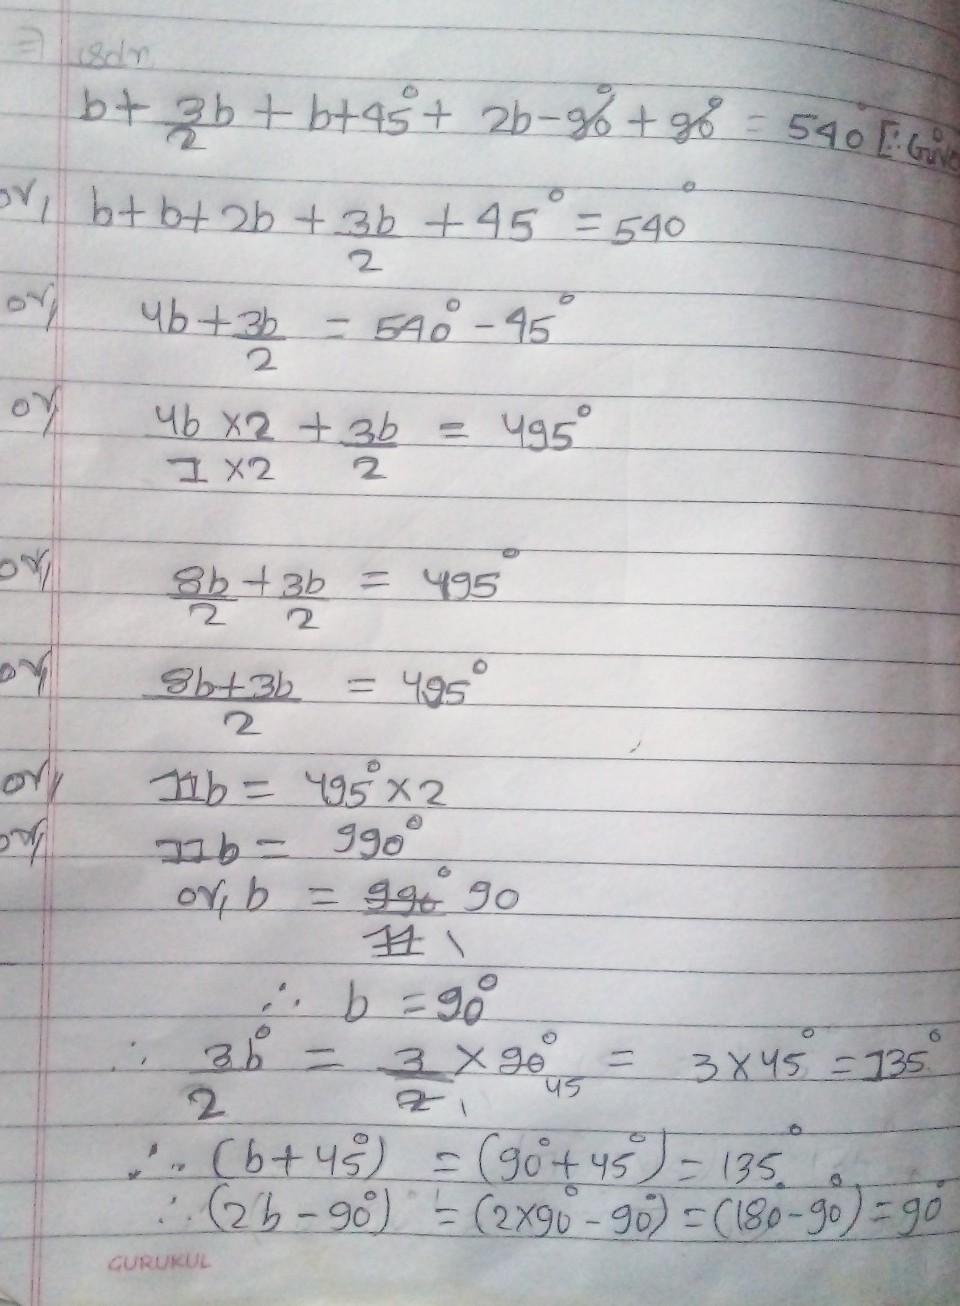 ⇒ soln
b + 3b/2 + b+45° + 2b-90° + 90° = 540° [∵ Given
or, b+b+2b + 3b/2 + 45° = 540°
or, 4b + 3b/2 = 540° - 45°
or, 4b ×2/1 ×2 + 3b/2 = 495°
or, 8b/2 + 3b/2 = 495°
or, 8b+3b/2 = 495°
or, 11b = 495° × 2
or, 11b = 990°
or, b = 990°/11 90 1
∴ b = 90°
∴ 3b°/2 = 3/2 × 90° 45 1 = 3 × 45° = 135°
∴ (b+45°) = (90°+45°) = 135°
∴ (2b - 90°) = (2×90° - 90°) = (180 - 90°) = 90°
GURUKUL